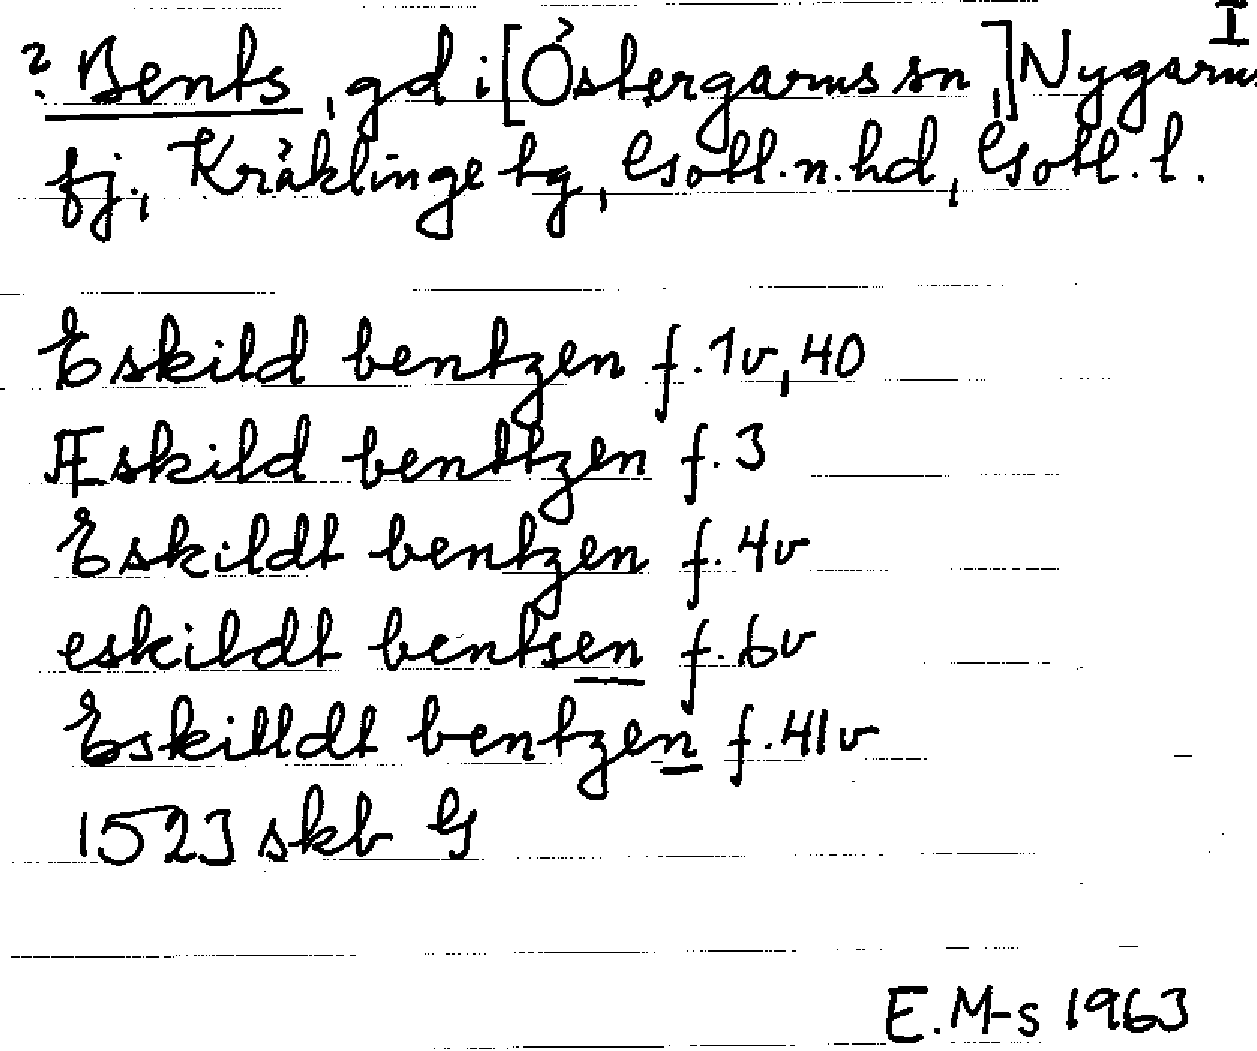 I
? Bents, gd i [Östergarns sn,] Nygarns
fj., Kräklinge tg, Gotl. n. hd, Gotl. l.
Eskild bentzen f. 1v, 40
Æskild benttzen f. 3
Eskildt bentzen f. 4v
eskildt bentsen f. 6v
Eskilldt bentzen f. 41v
1523 skb G
E. M-s 1963